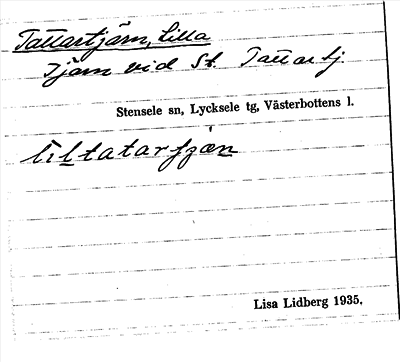 Tattartjärn, Lilla
Tjärn vid St. Tattartj.
Stensele sn, Lycksele tg, Västerbottens l.
liltatarſʒæn
Lisa Lidberg 1935.